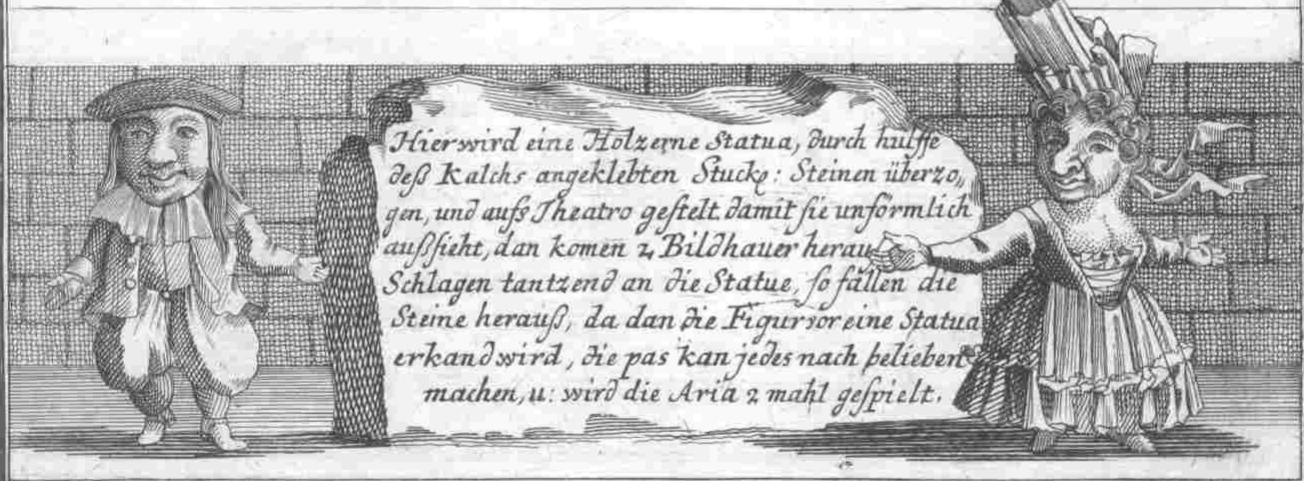 Hier wird eine Holzerne Statua, durch hülffe
deß Kalchs angeklebten Stucke: Steinen überzo„
gen, und aufs Theatro gestelt damit sie unförmlich
außsieht, dan komen 2 Bildhauer herau
Schlagen tantzend an die Statue, so fallen die
Steine herauß, da dan die Figur vor eine Statua
erkand wird, die pas kan jedes nach belieben
machen, u: wird die Aria 2 mahl gespielt.